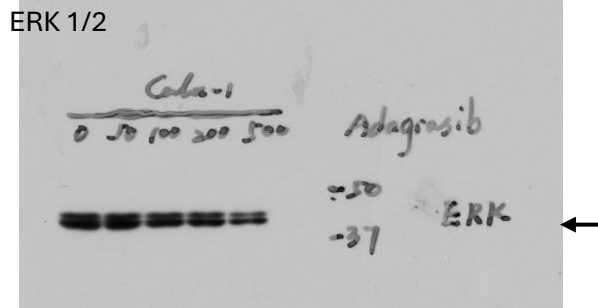 ERK 1/2
Calu-1
0 50 100 200 500
Adagrasib
-50
ERK
-37